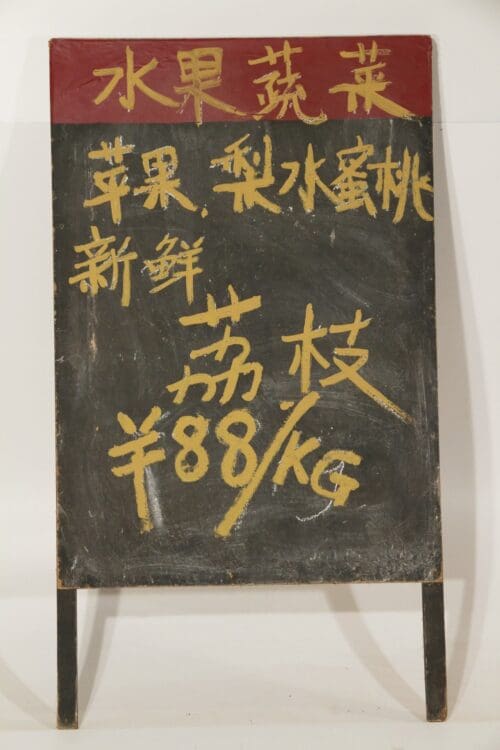 水果蔬菜
苹果,梨水蜜桃
新鲜
荔枝
¥88/KG